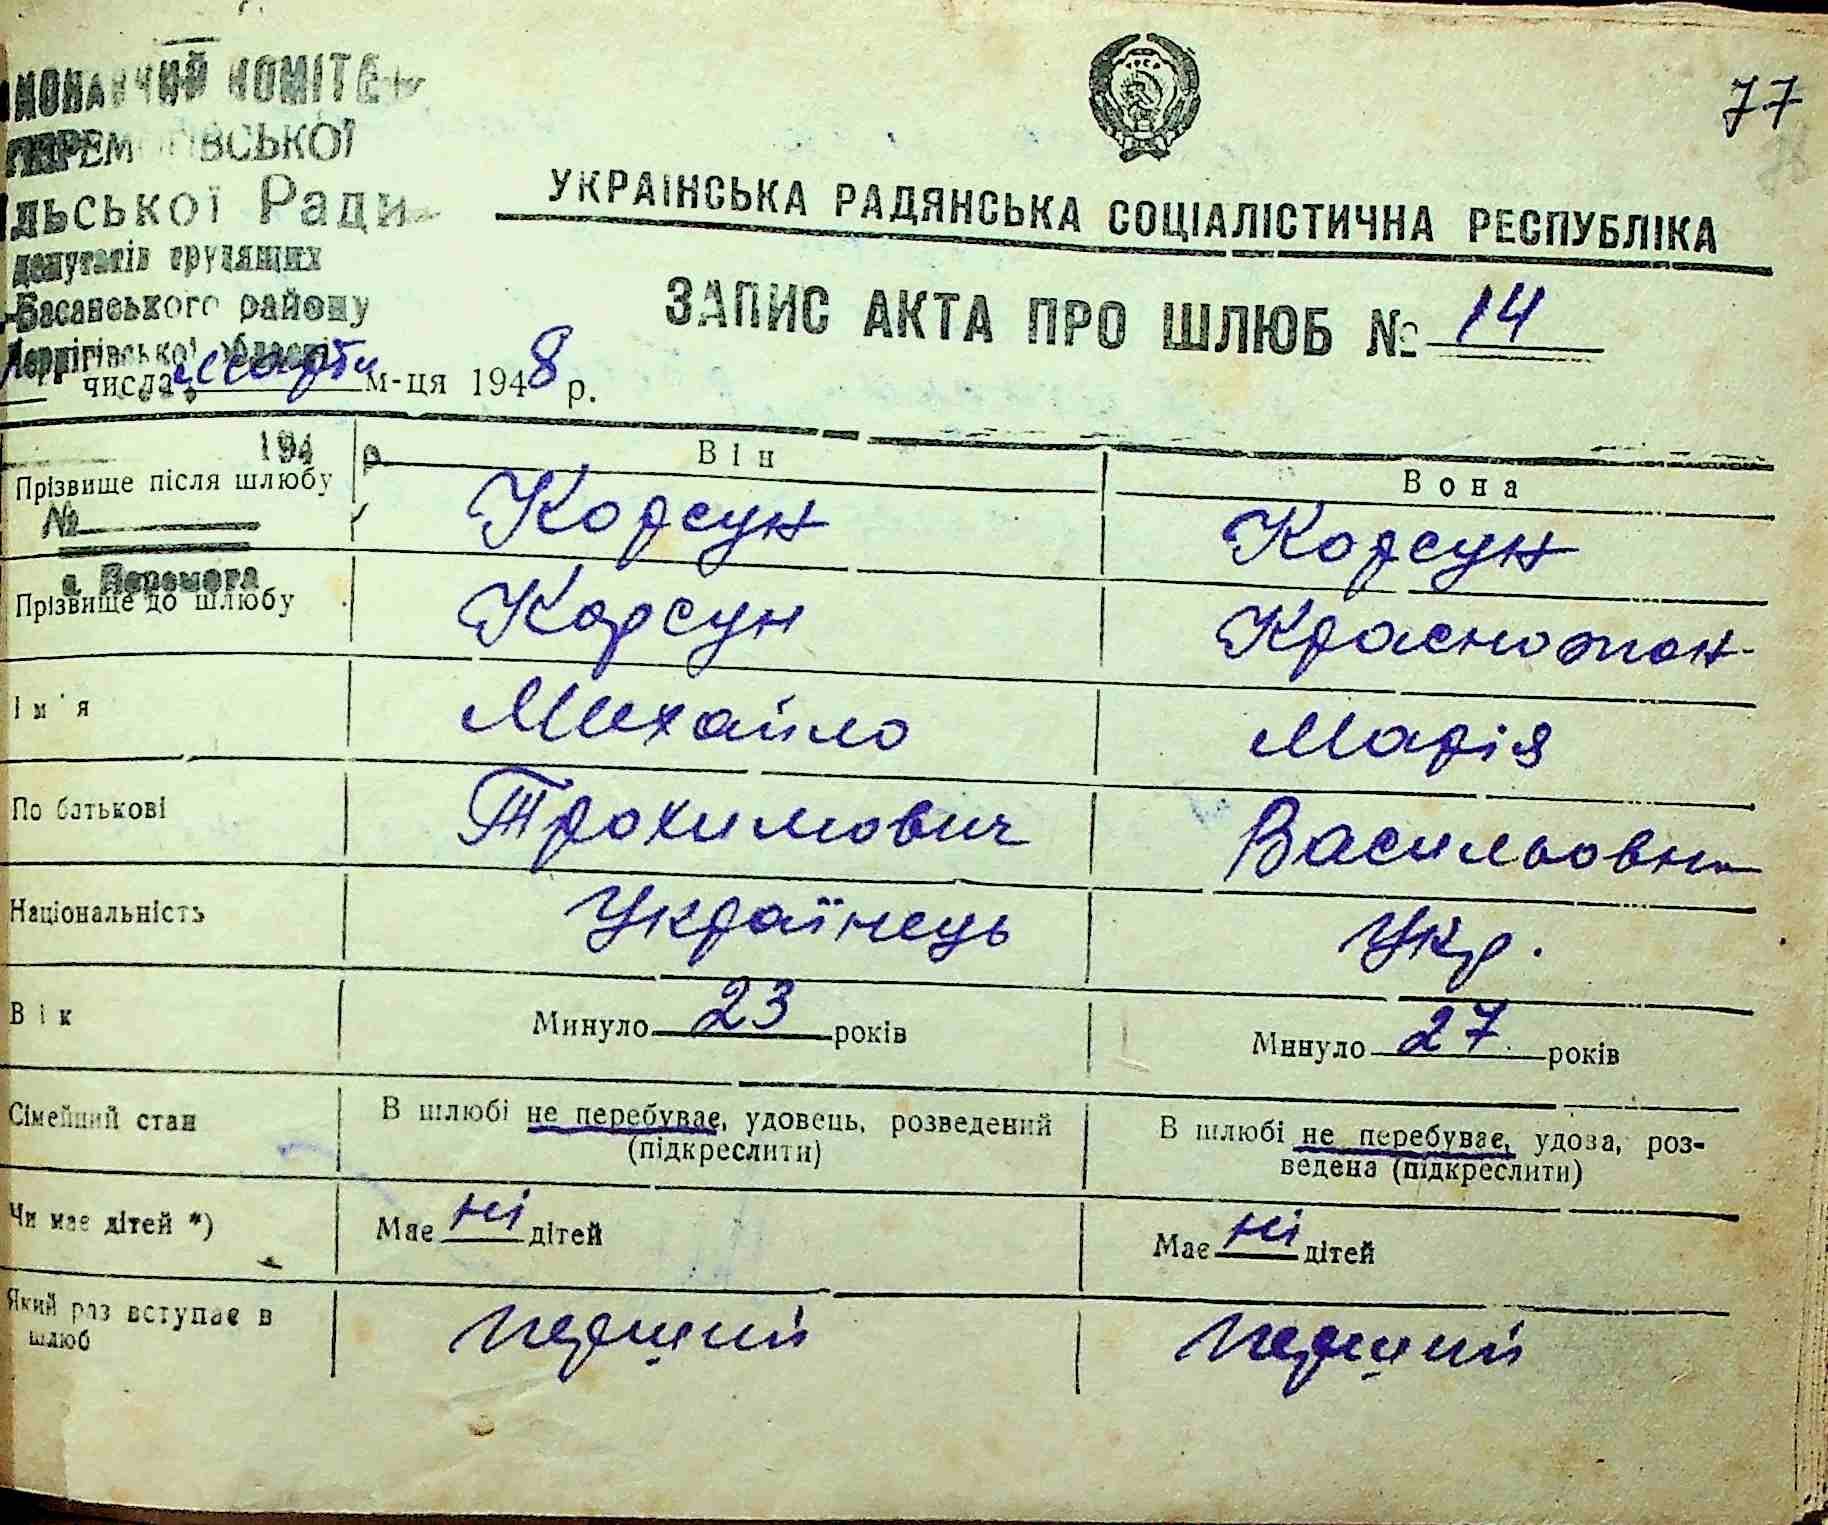 77
УКРАЇНСЬКА РАДЯНСЬКА СОЦІАЛІСТИЧНА РЕСПУБЛІКА
ЗАПИС АКТА ПРО ШЛЮБ № 14
КОМІТЕ
ІЛЬСЬКОЇ Ради
депутатів трудящих
Басанського району
Чернігівської області
числа марта м-ця 1948 р.
194 р
№
с. Перемога
Він Вона
Прізвище після шлюбу Корсун Корсун
Прізвище до шлюбу Корсун Красножон
Ім'я Михайло Марія
По батькові Трохимович Васильовна
Національність Українець Укр.
Вік Минуло 23 років Минуло 27 років
Сімейний стан В шлюбі не перебуває, удовець, розведений В шлюбі не перебуває, удова, роз-
(підкреслити) ведена (підкреслити)
Чи має дітей *) Має ні дітей Має ні дітей
Який раз вступає в перший перший
шлюб